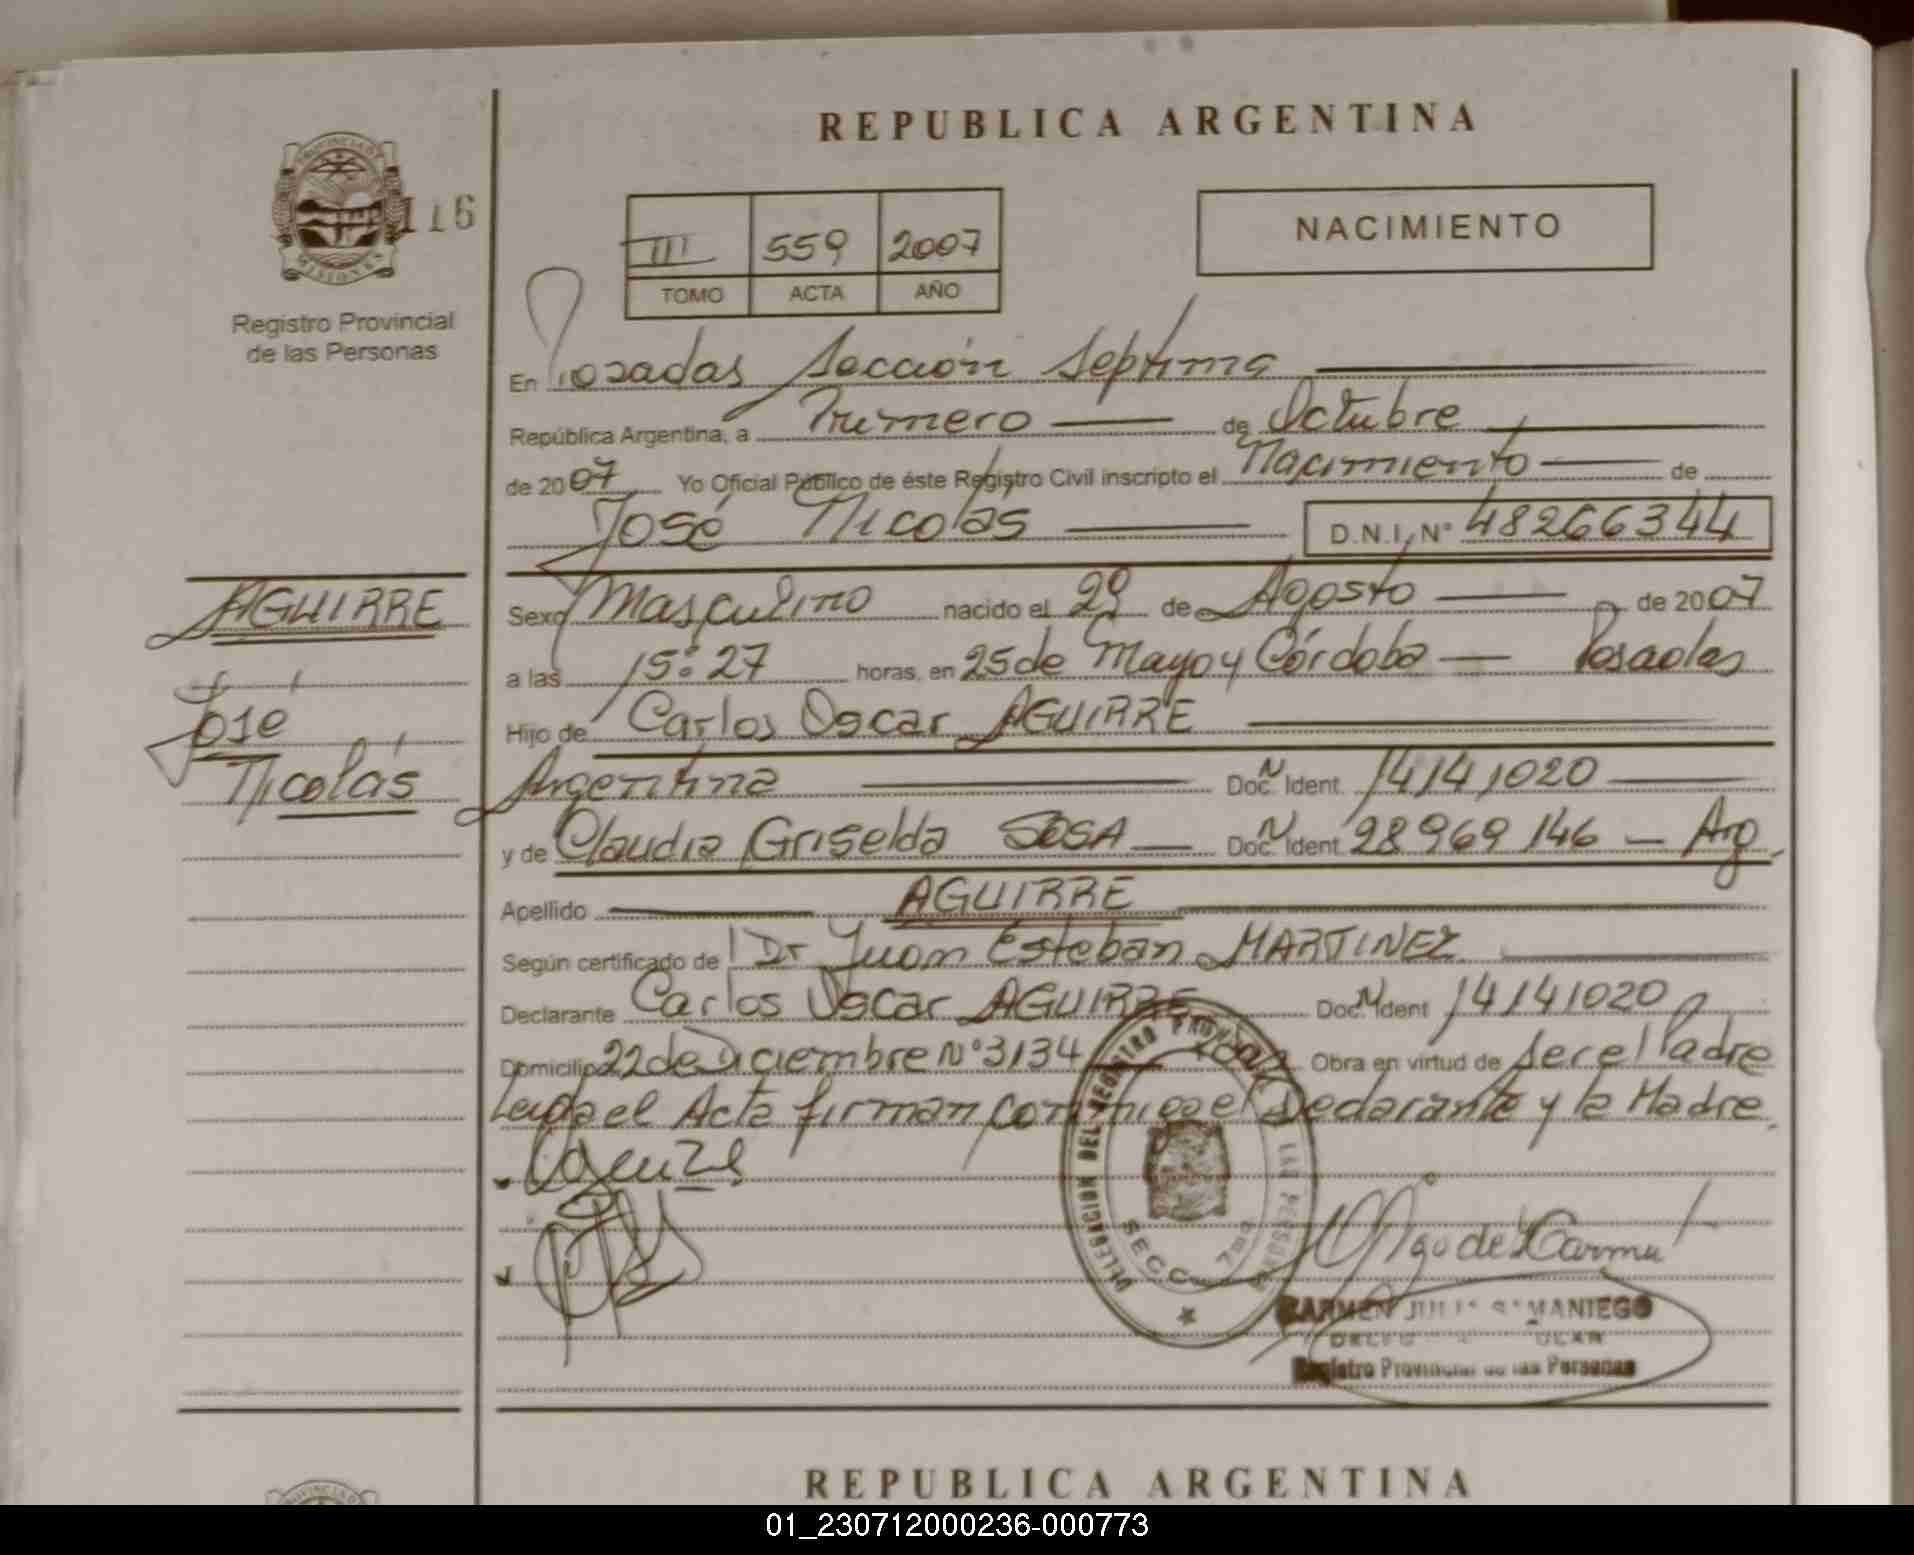 REPUBLICA ARGENTINA
PROVINCIA DE
MISIONES
116
Registro Provincial
de las Personas
III 559 2007
TOMO ACTA AÑO
NACIMIENTO
En Posadas Sección Septima
República Argentina, a Primero de Octubre
de 2007 Yo Oficial Público de éste Registro Civil inscripto el Nacimiento de
José Nicolás D.N.I. N° 48266344
AGUIRRE
José
Nicolás
Sexo Masculino nacido el 29 de Agosto de 2007
a las 15:27 horas, en 25 de Mayo y Córdoba — Posadas
Hijo de Carlos Oscar AGUIRRE
Argentina Doc. N Ident. 14141020
y de Claudia Griselda SOSA Doc. N Ident. 28969146 — Arg.
Apellido AGUIRRE
Según certificado de Dr Juan Esteban MARTINEZ
Declarante Carlos Oscar AGUIRRE Doc. N Ident 14141020
Domicilio 22 de Diciembre N° 3134 Obra en virtud de ser el Padre
Leida el Acta firman conmigo el Declarante y la Madre.
DELEGACION DEL REGISTRO PROVINCIAL DE LAS PERSONAS
SECC. 7ma
CARMEN
Registro Provincial de las Personas
REPUBLICA ARGENTINA
01_230712000236-000773